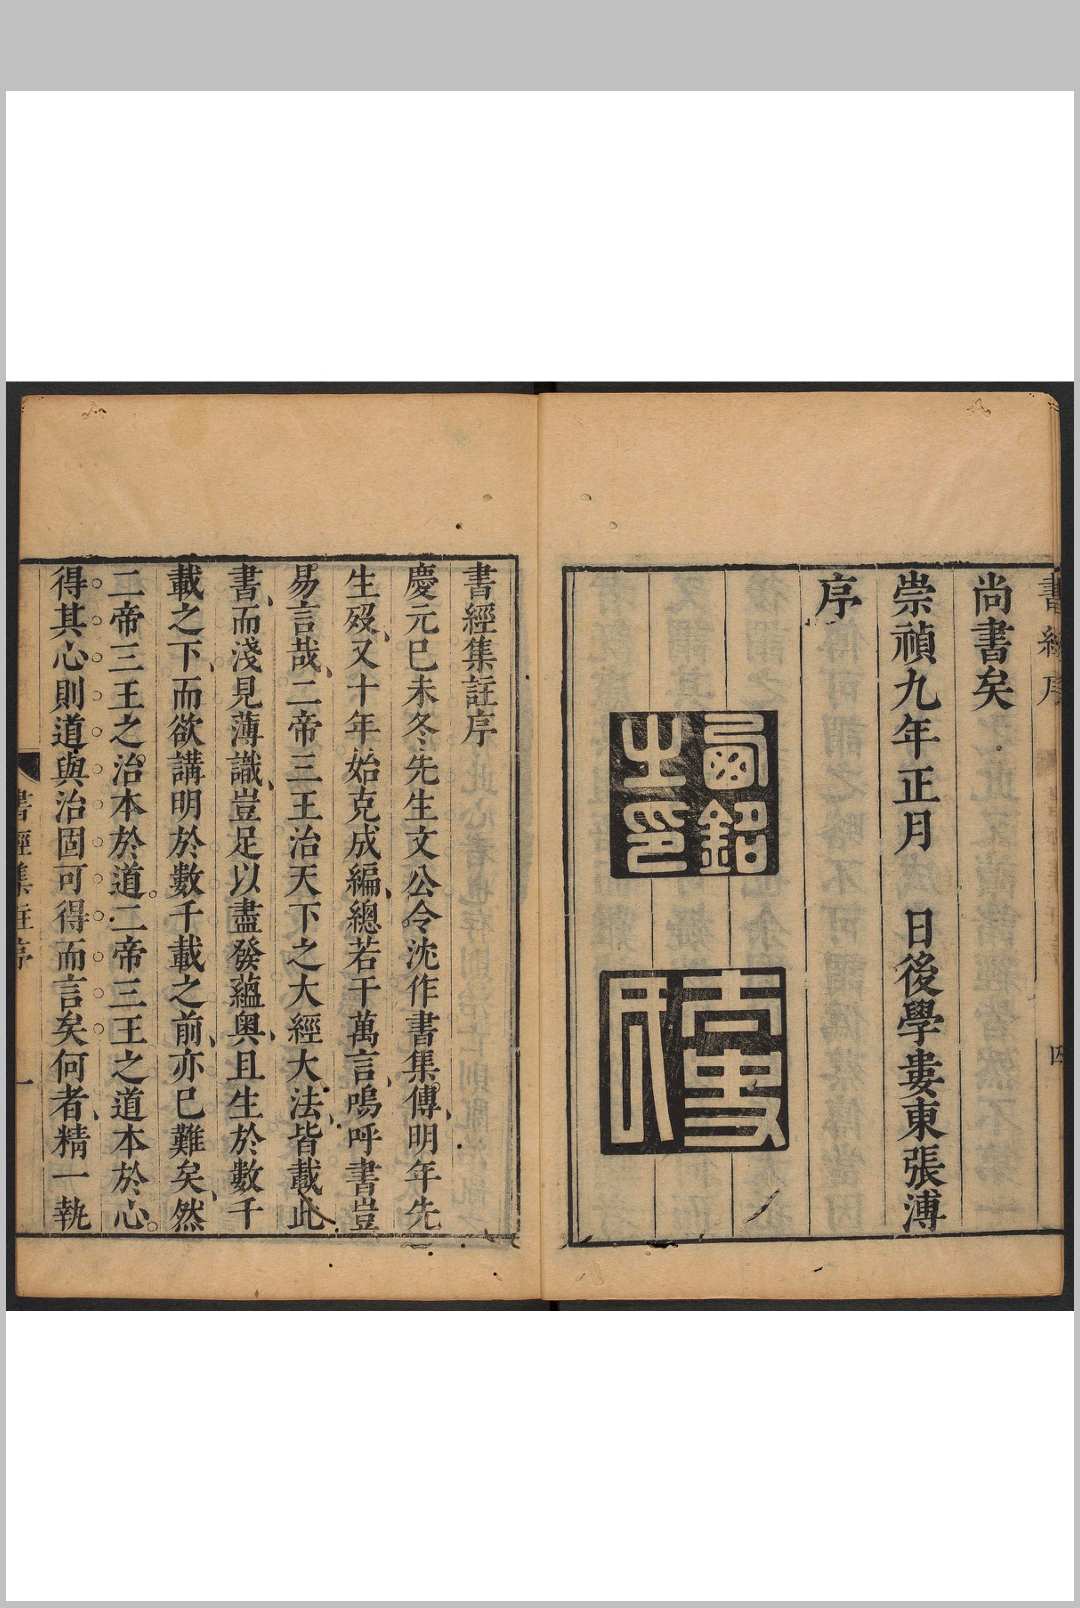 書經序
四
尚書矣
崇禎九年正月　日後學婁東張溥
序
書經集註序
慶元已未冬先生文公令沈作書集傳明年先
生歿又十年始克成編總若干萬言嗚呼書豈
易言哉二帝三王治天下之大經大法皆載此
書而淺見薄識豈足以盡發蘊奥且生於數千
載之下而欲講明於數千載之前亦已難矣然
二帝三王之治本於道二帝三王之道本於心
得其心則道與治固可得而言矣何者精一執
書經集註序
一